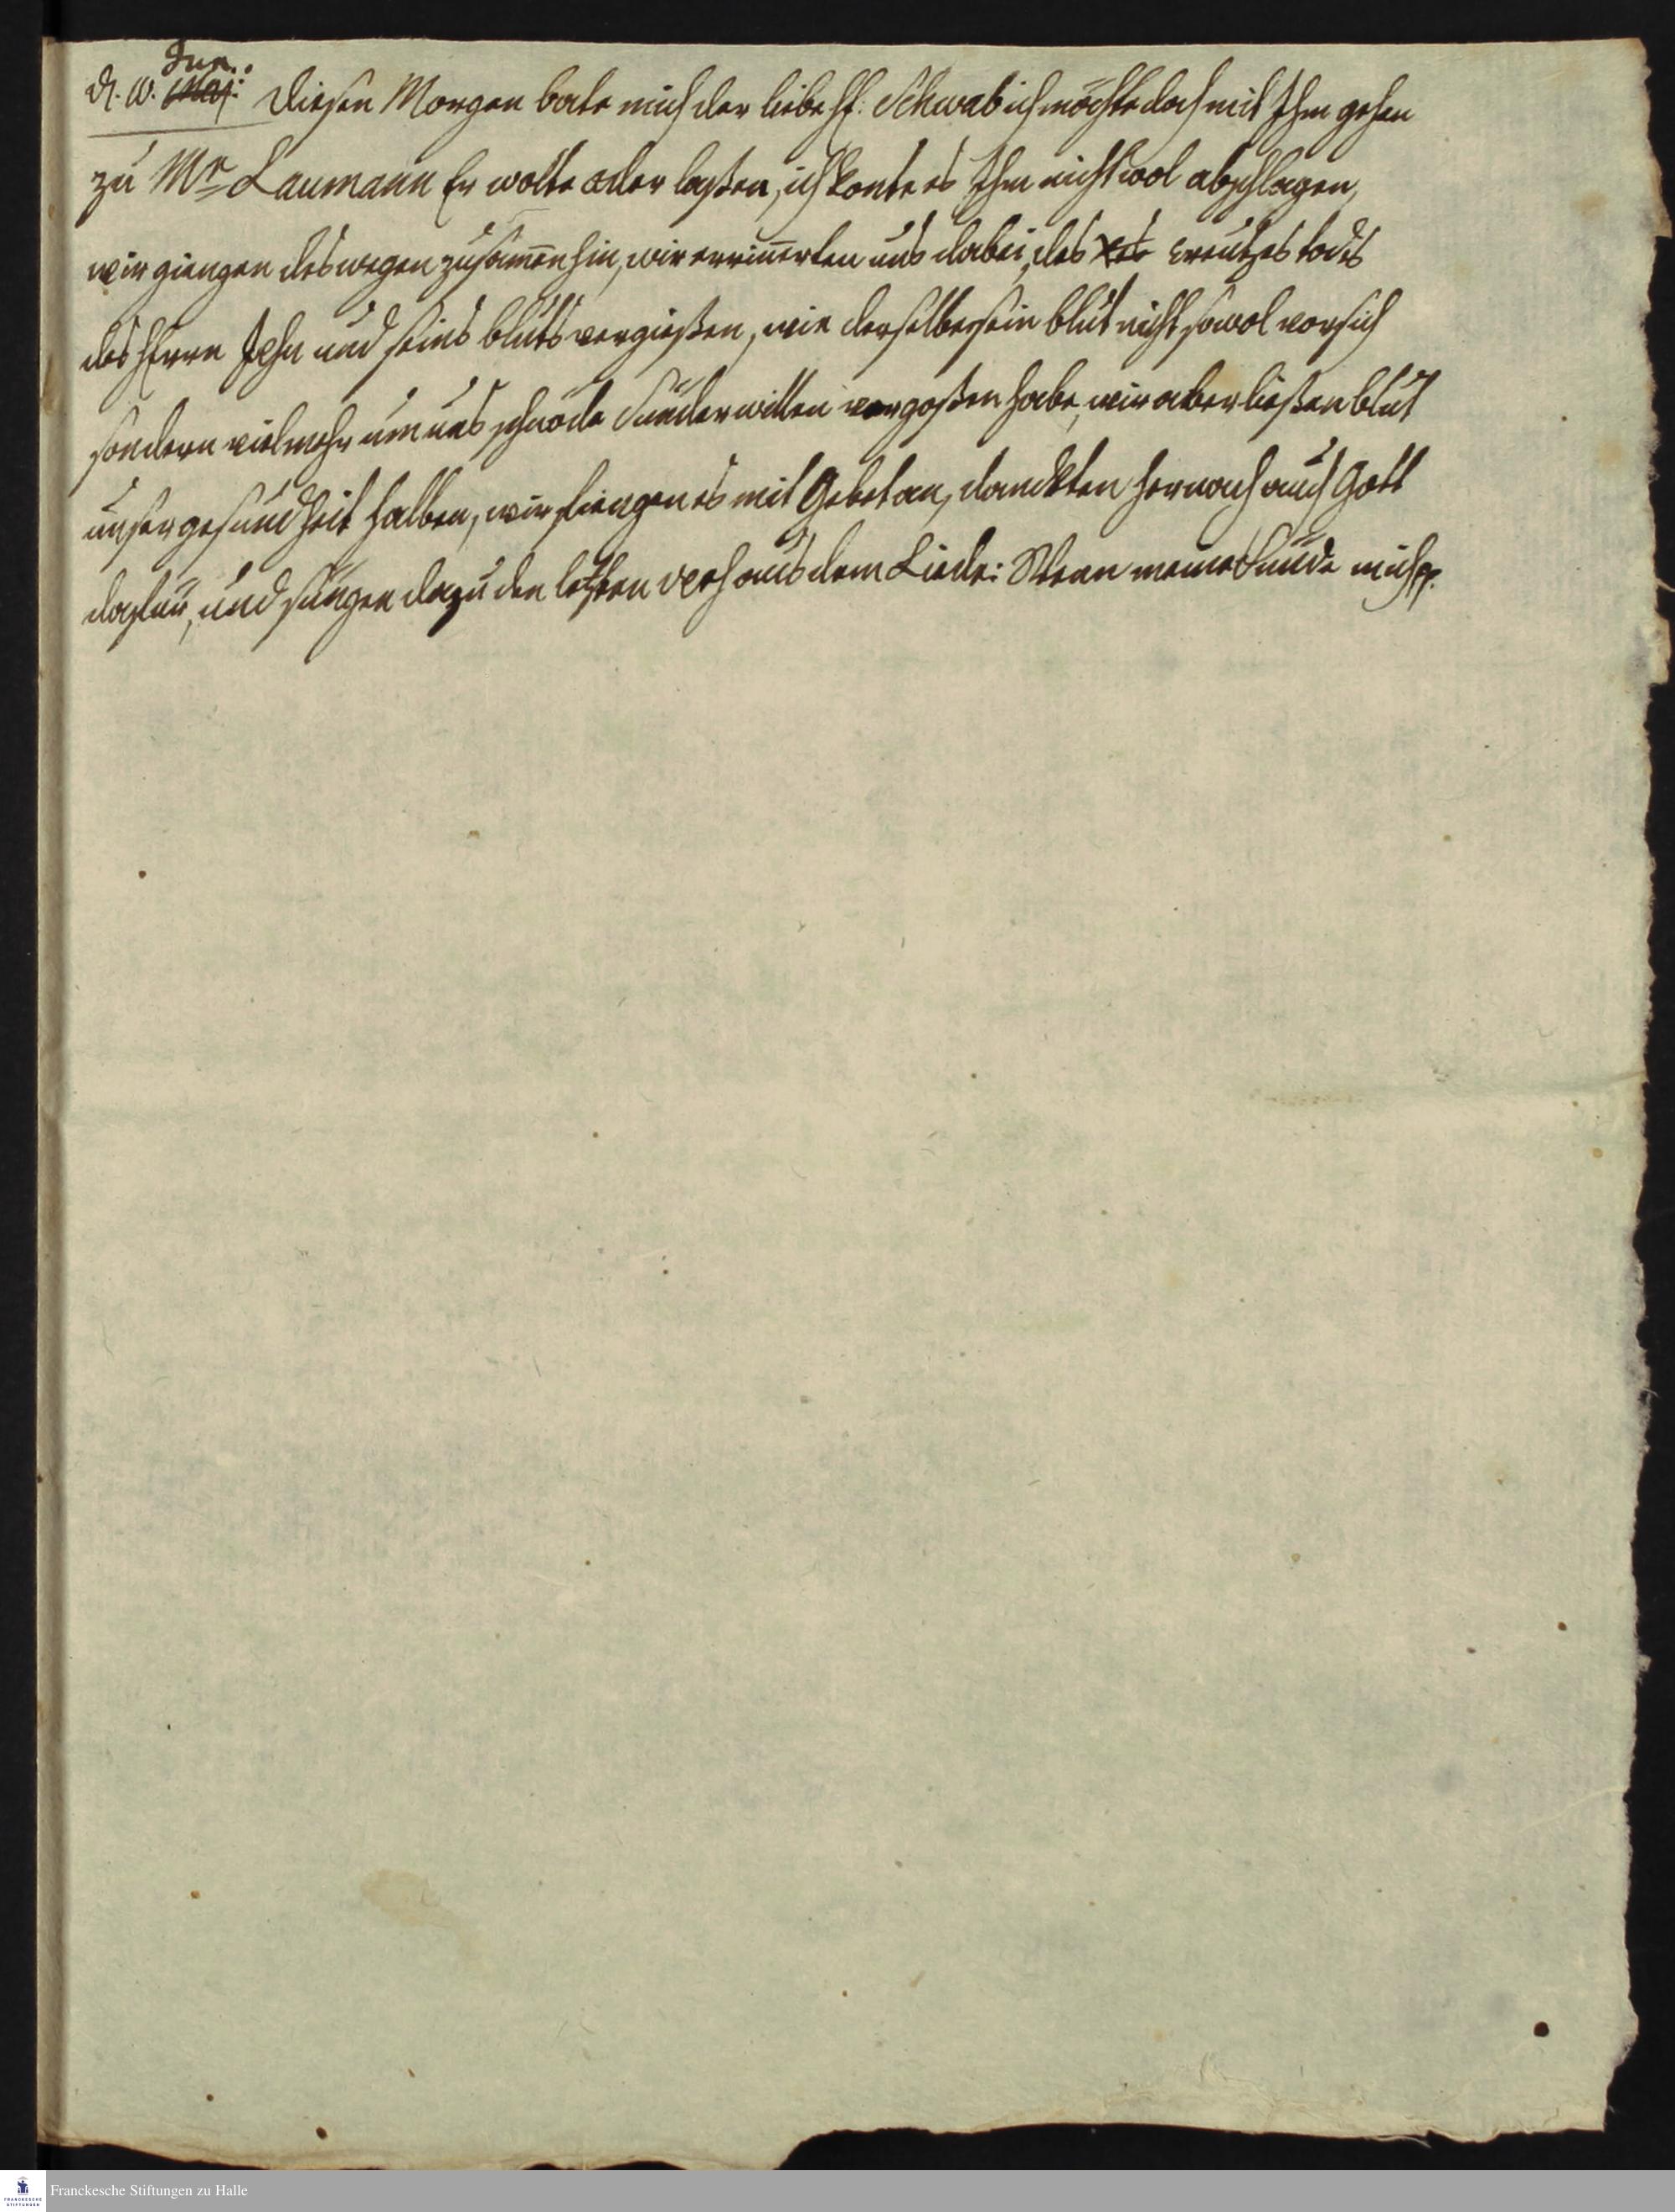 Jun.
d. 10. Maj: Diesen Morgen bate mich der liebe H. Schwab ich möchte doch mit Ihm gehen
zu Mr Laumann Er wolte ader laßen, ich konte es Ihm nicht wol abschlagen,
wir giengen deswegen zusam̅en hin, wir errin̅erten uns dabei, des Creutzes tods
des HErrn JEsu und seins bluts vergießen, wie derselbe sein blut nicht sowol vor sich
sondern vielmehr um uns schnöde Sünder willen vergoßen habe, wir aber ließen blut
unser gesundheit halben, wir fiengen es mit Gebet an, danckten hernach auch Gott
dafür, und sungen dazu den letzten vers aus dem Liede: Wenn meine Sünde mich p.
Franckesche Stiftungen zu Halle
FRANCKESCHE
STIFTUNGEN